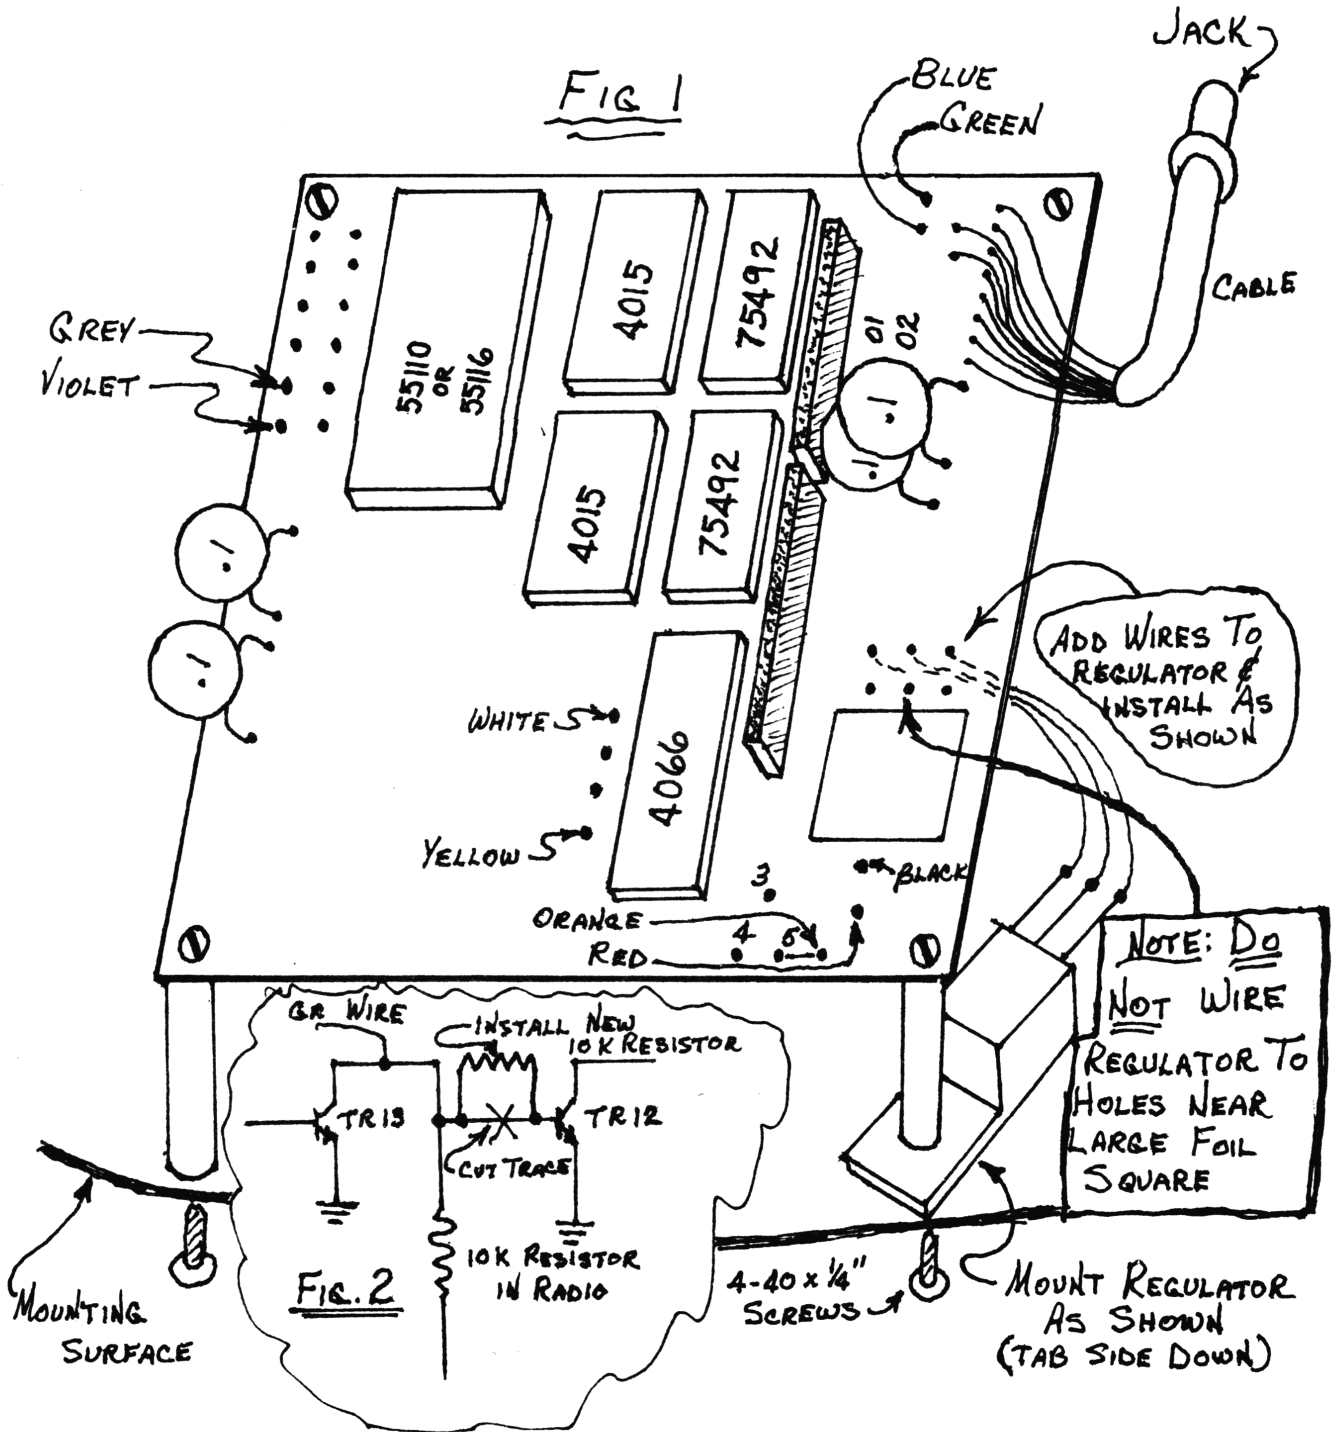 FIG 1
JACK
BLUE
GREEN
CABLE
GREY
VIOLET
55110
OR
55116
4015
75492
01
02
.1
.1
4015
75492
.1
.1
ADD WIRES TO
REGULATOR &
INSTALL AS
SHOWN
WHITE
4066
YELLOW
BLACK
3
ORANGE
4
5
RED
NOTE: DO
NOT WIRE
REGULATOR TO
HOLES NEAR
LARGE FOIL
SQUARE
GR WIRE
INSTALL NEW
10K RESISTOR
TR13
TR12
CUT TRACE
10K RESISTOR
IN RADIO
FIG. 2
MOUNTING
SURFACE
4-40 x 1/4"
SCREWS
MOUNT REGULATOR
AS SHOWN
(TAB SIDE DOWN)